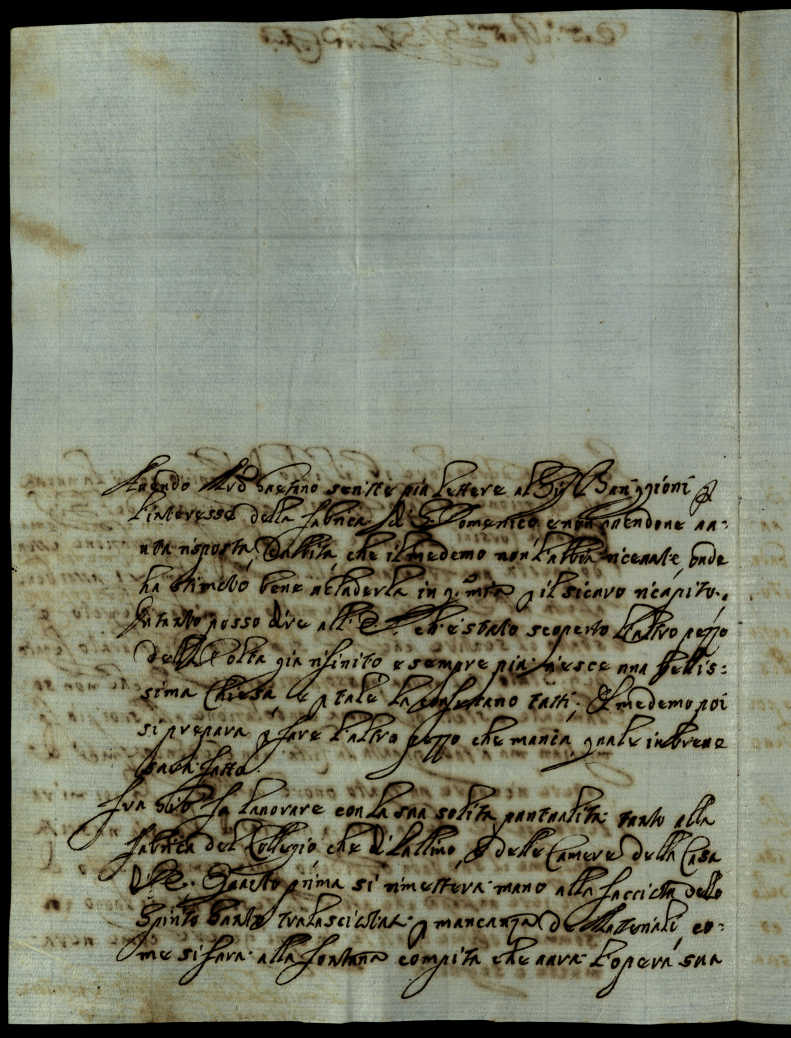 Avendo M.ro Gaetano scritte più lettere al Sig.r Sanggioni p
l'interesse della fabrica di S. Domenico e non avendone aa-
uta risposta, dubita che il medemo non l'abbia riceuute, onde
ha stimato bene accluderla in q.ta mia p il sicuro ricapito.
Intanto posso dire all' che è stato scoperto l'altro pezzo
della Volta già rifinito e sempre più riesce una bellis-
sima Chiesa, e p tale la confessano tutti; Il medemo poi
si prepara p fare l'altro pezzo che manca, quale in breve
sarà fatto.
fa lauorare con la sua solita puntualità tanto alla
fabrica del Collegio, che di Latino, e delle Camere della Casa
Quanto prima si rimetterà mano alla facciata dello
Spirito Santo tralasciata p mancanza de Materiali, co-
me si farà alla fontana compita che avrà l'opera sua